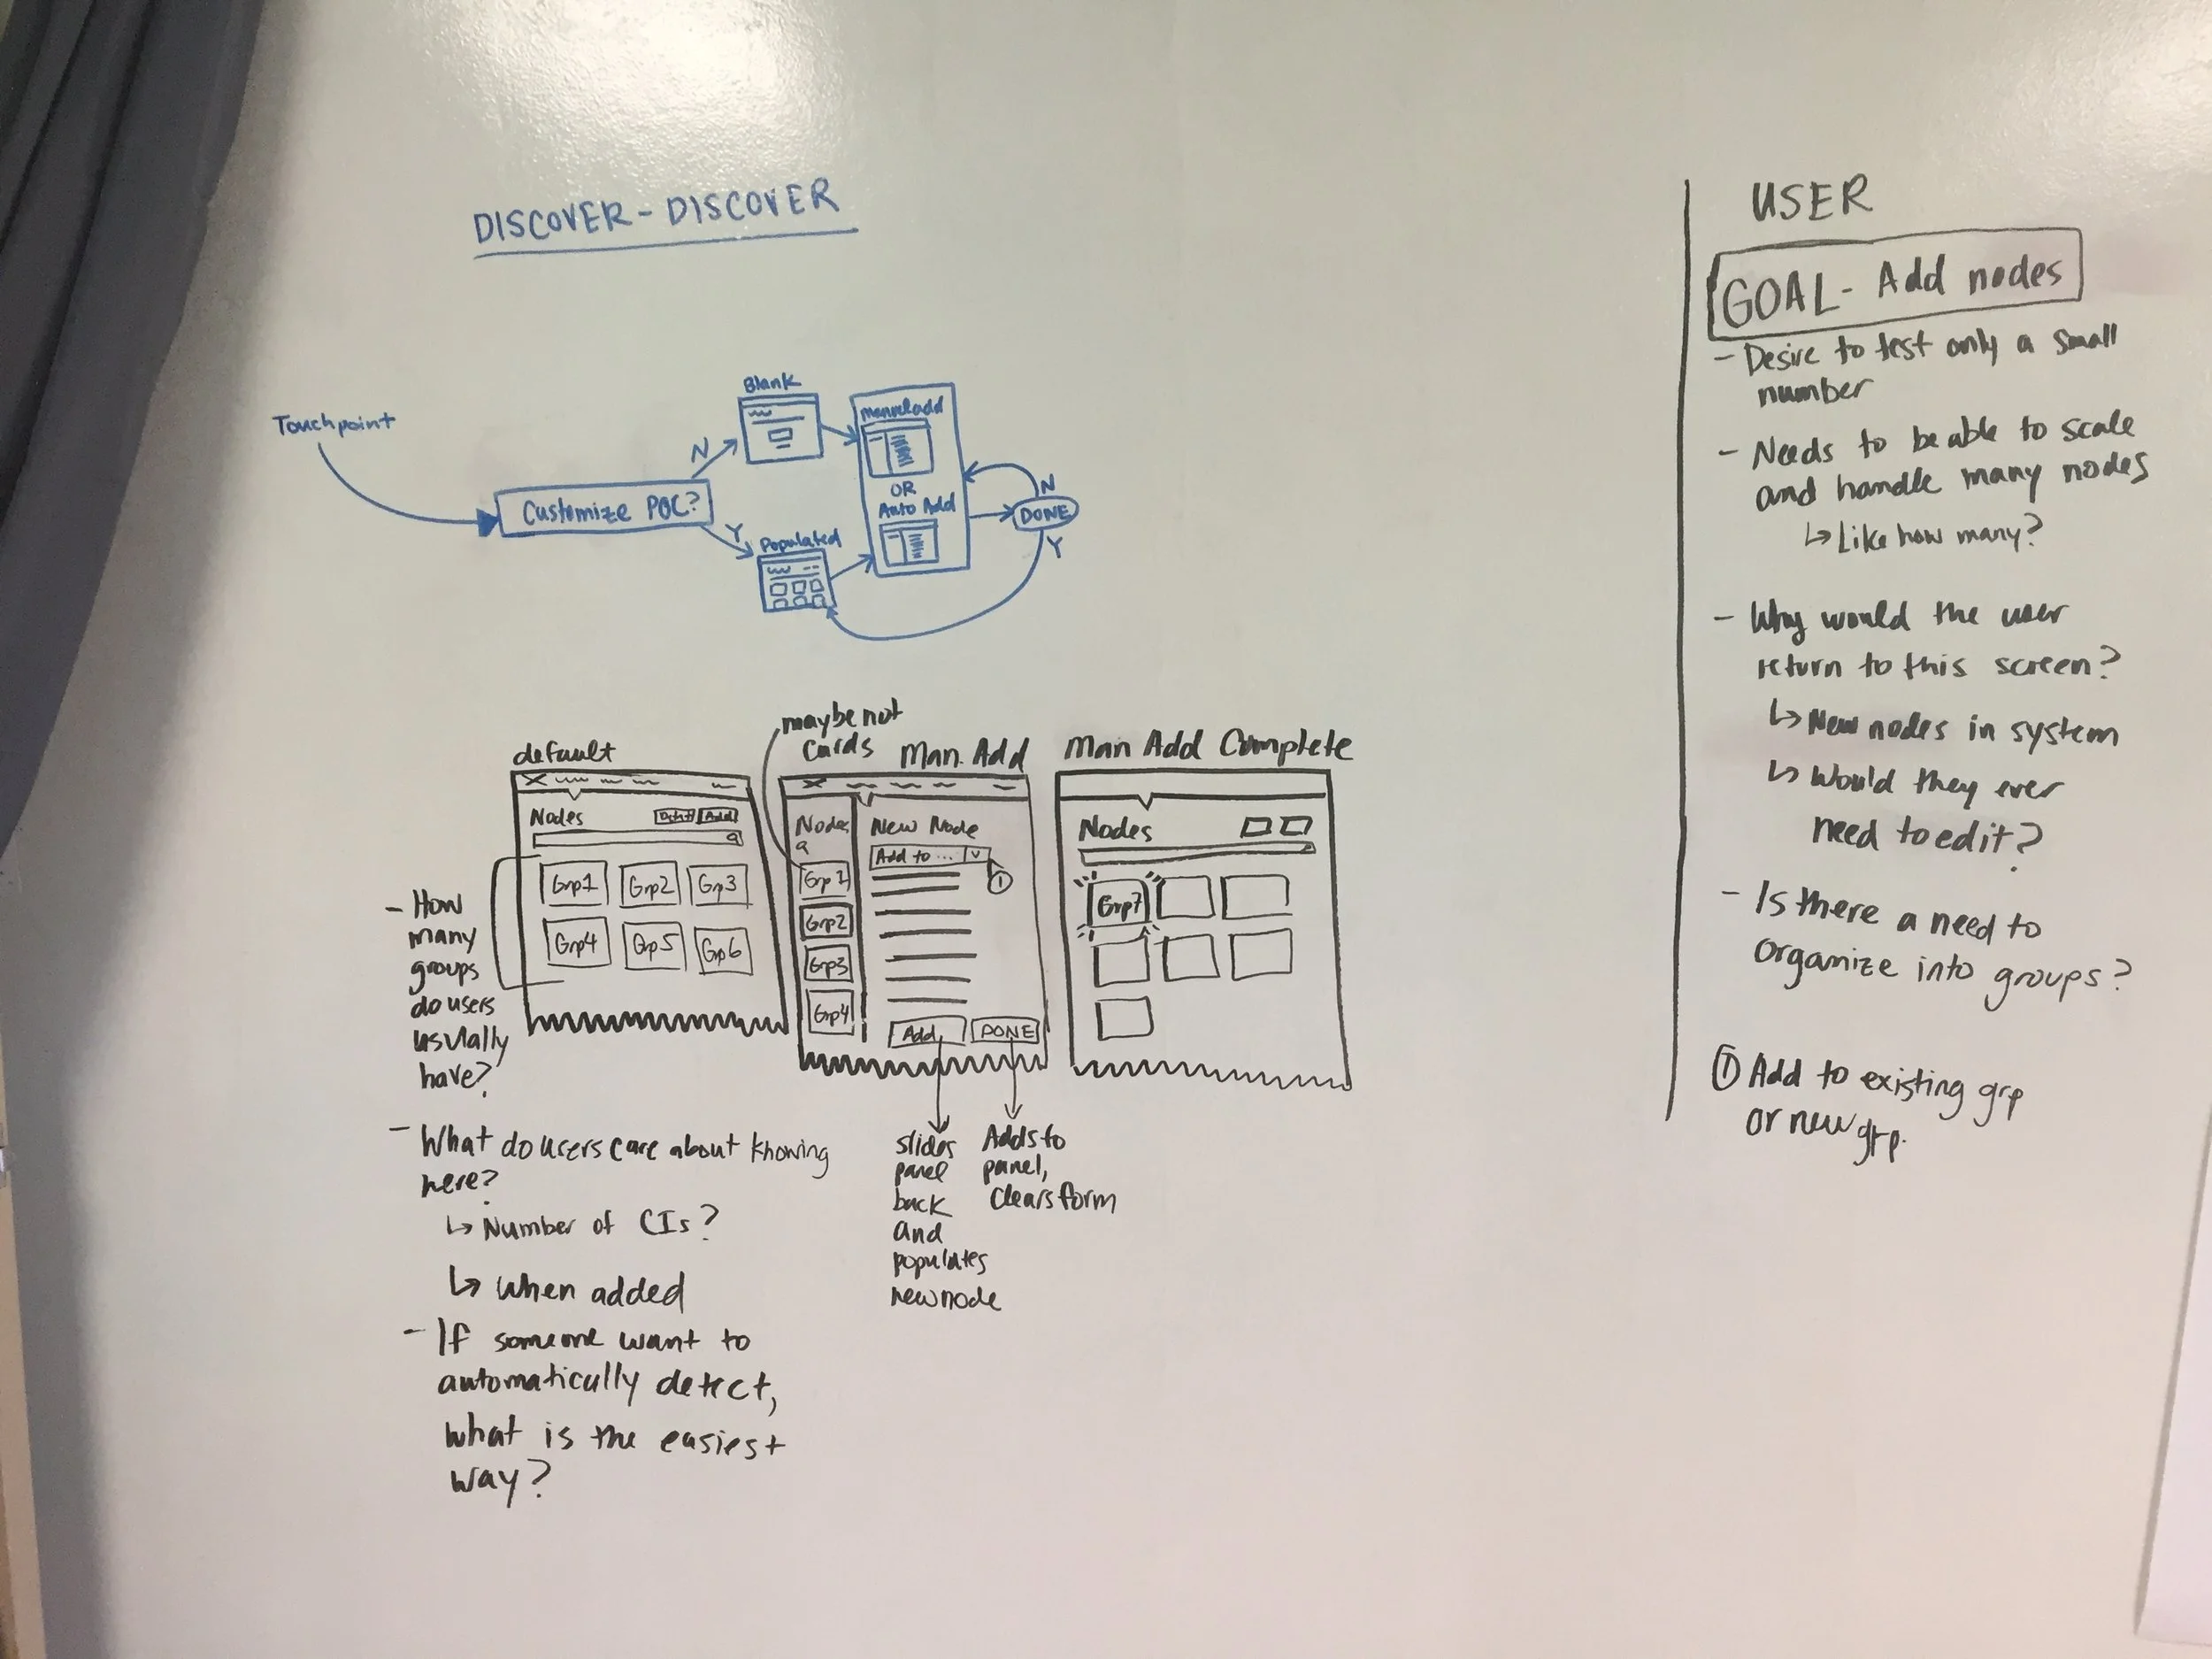 DISCOVER - DISCOVER
Touchpoint
Customize POC?
N
Y
Blank
Populated
manual add
OR
Auto Add
N
DONE
Y
default
Nodes
Add
Grp1 Grp2 Grp3
Grp4 Grp5 Grp6
maybe not
cards
Man. Add
Nodes
New Node
Add to ... v
1
Grp1
Grp2
Grp3
Grp4
Add
DONE
Man Add Complete
Nodes
Grp7
- How
many
groups
do users
usually
have?
- What do users care about knowing
here?
↳ Number of CIs?
↳ When added
- If someone want to
automatically detect,
what is the easiest
way?
slides
panel
back
and
populates
new node
Adds to
panel,
clears form
USER
GOAL - Add nodes
- Desire to test only a small
number
- Needs to be able to scale
and handle many nodes
↳ Like how many?
- Why would the user
return to this screen?
↳ New nodes in system
↳ Would they ever
need to edit?
- Is there a need to
organize into groups?
① Add to existing grp
or new grp.